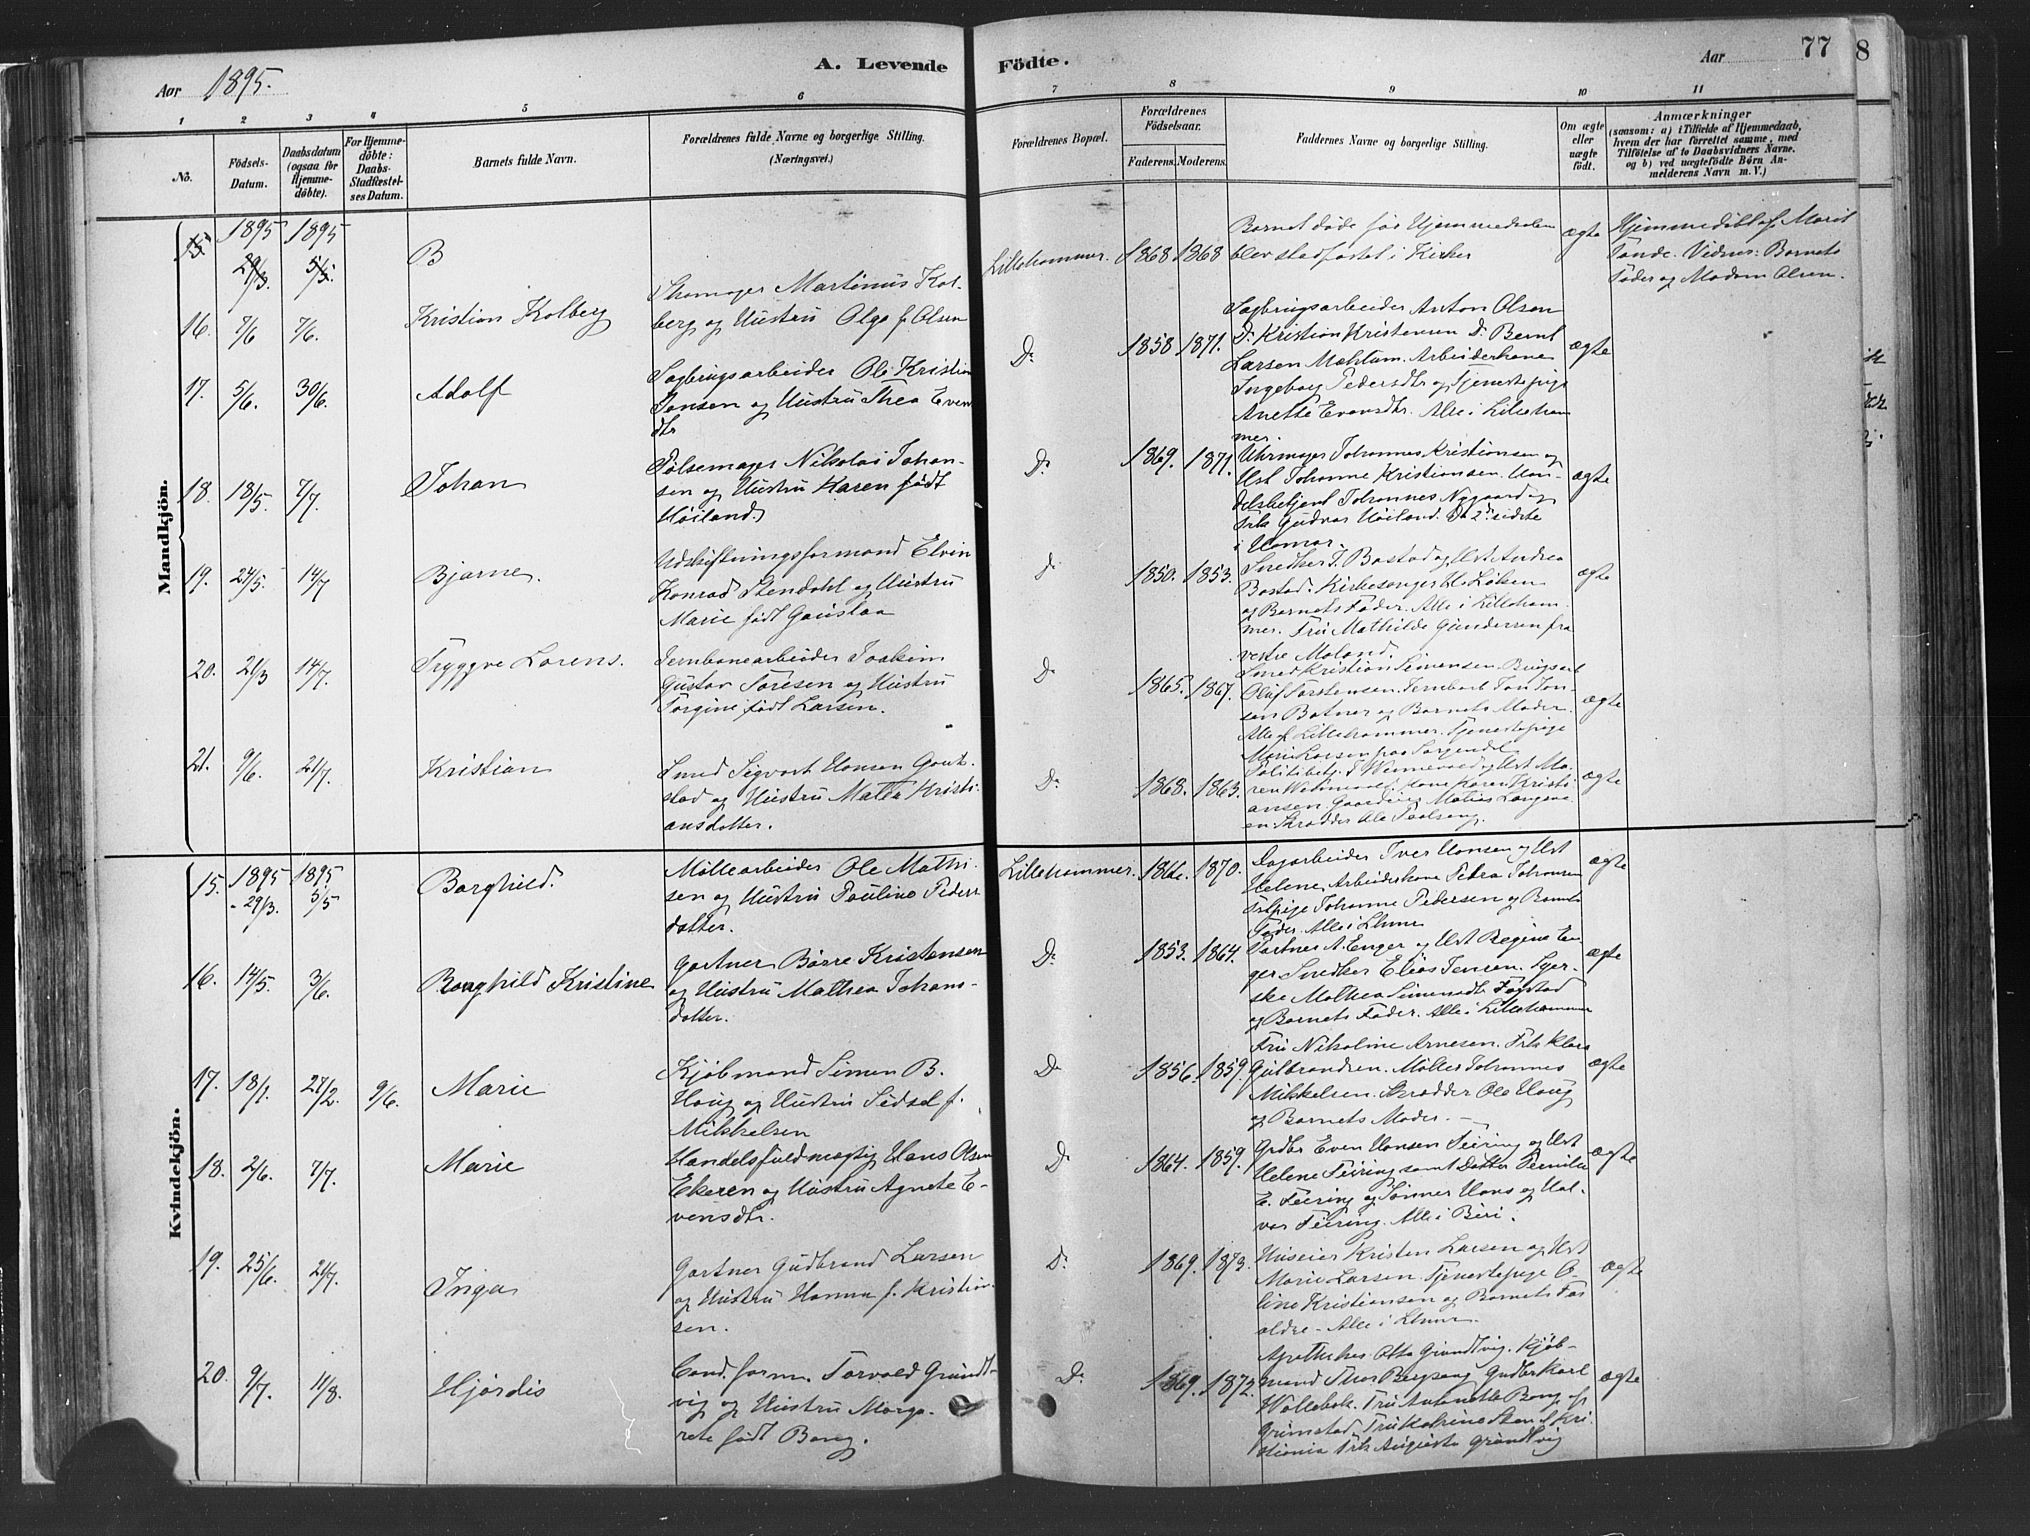 Aar 1895.
A. Levende Födte.
Aar 77
8
1 2 3 4 5 6 7 8 9 10 11
No.
Födsels-Datum.
Daabsdatum (ogsaa for Hjemme-döbte).
For Hjemme-döbte: Daabs-Stadfæstel-ses Datum.
Barnets fulde Navn.
Forældrenes fulde Navne og borgerlige Stilling. (Næringsvei.)
Forældrenes Bopæl.
Forældrenes Födselsaar.
Faderens. Moderens.
Faddernes Navne og borgerlige Stilling.
Om ægte eller uægte födt.
Anmærkninger
(saasom: a) i Tilfælde af Hjemmedaab, hvem der har forrettet samme, med Tilföielse af to Daabsvidners Navne, og b) ved uægtefödte Börn An-melderens Navn m. V.)
Mandkjön.
15 1895 29/3 1895 5/5 B
16. 7/6 7/6. Kristian Kolberg
Skomager Martinus Kol-
berg og Hustru Olga f. Olsen
Lillehammer. 1868 1868
Barnet døde før Hjemmedaaben
blev stadfæstet i Kirken
ægte
Hjemmedøbt af Marit
Tande. Vidner: Barnets
Fader og Madam Olsen.
17. 5/6. 30/6. Adolf
Sagbrugsarbeider Ole Kristian
Jansen og Hustru Thea Even
dtr
Do 1858 1871.
Sagbrugsarbeider Anton Olsen
Do Kristian Kristensen Do Bernt
Larsen Arbeiderkone
Ingeborg Pedersdtr og Tjenestepige
Anette Evensdtr. Alle i Lilleham
mer.
ægte
18. 18/5. 7/7. Johan
Pølsemager Nikolai Johan-
sen og Hustru Karen født
Høiland.
Do 1869. 1871.
Uhrmager Johannes Kristiansen og
Hst Johanne Kristiansen. Han-
delsbetjent Johannes Nygaard og
Frk Gudrun Høiland. De 2de sidste
i Hamar.
ægte
19. 24/5. 14/7 Bjarne.
Udskiftningsformand Elvin
Konrad Stendahl og Hustru
Marie født Gauslaa
Do 1850. 1853.
Snedker J. Bastad og Hst Andrea
Bastad. Kirkesanger Løken
og Barnets Fader. Alle i Lilleham
mer. Fru Mathilde Gundersen fra
vestre Moland.
ægte
20. 21/3 14/7. Tryggve Lorens.
Jernbanearbeider Joakim
Gustav Toresen og Hustru
Torgine født Larsen.
Do 1865. 1867.
Smed Kristian Simensen. Brugsarb
Oluf Torstensen. Jernbarb Jon Jon-
sen Batner og Barnets Moder.
Alle f Lillehammer. Tjenestepige
Marie Larsen
ægte
21. 9/6. 21/7. Kristian
Smed Sigvart Hansen Gouk-
stad og Hustru Matea Kristi-
ansdatter.
Do 1868. 1863.
Politibetj. og Hst Ma-
ren Kone Karen Kristi-
ansen. Matias
Skrædder Ole Paulseng.
ægte
Kvindekjön.
15. 1895 29/3. 1895 5/5 Borghild.
Møllearbeider Ole Mathi-
sen og Hustru Pauline Peders
datter.
Lillehammer. 1866. 1870.
Dagarbeider Iver Hansen og Hst
Helene, Arbeiderkone Petra Johansen
Johanne Pedersen og Barnets
Fader. Alle i Lhmr
ægte
16. 14/5. 3/6. Borghild Kristine
Gartner Børre Kristensen
og Hustru Mathea Johans-
datter.
Do 1853. 1864.
Gartner A. Enger og Hst Regine En
ger Snedker Elias Jensen. Syer-
ske Mathea Simensdtr Fogstad
og Barnets Fader. Alle i Lillehammer
ægte
17. 18/1. 27/2. 9/6. Marie
Kjøbmand Simen B.
Haug og Hustru Sidsel f.
Mikkelsen
Do 1856. 1859.
Fru Nikoline Arnesen. Frk Klara
Gulbrandsen. Møller Johannes
Mikkelsen. Skrædder Ole Haug
og Barnets Moder.
ægte
18. 2/6. 7/7. Marie
Handelsfuldmægtig Hans Olsen
Ekeren og Hustru Agnete E-
vensdtr.
Do 1864. 1859.
Grdbr Even Hansen Feiring og Hst
Helene Feiring samt Datter Pernille
E. Feiring og Sønner Hans og Hal-
vor Feiring. Alle i Biri.
ægte
19. 25/6. 21/7. Inga
Gartner Gudbrand Larsen
og Hustru Hanna f. Kristian-
sen.
Do 1869. 1873.
Huseier Kristen Larsen og Hst
Marie Larsen. Tjenestepige O-
line Kristiansen og Barnets For
ældre. Alle i Lhmr.
ægte
20. 9/7. 11/8. Hjørdis
Cand. farm. Torvald Grundt-
vig og Hustru Marga-
rete født Borg.
Do 1869. 1872.
Apotheker Otto Grundtvig. Kjøb-
mand Thor Berg og Grdbr Karl
Wollebæk. Fru Antonette Borg af
Grimstad, Fru Katrine Steen af Kri-
stiania Frk Augusta Grundtvig
ægte